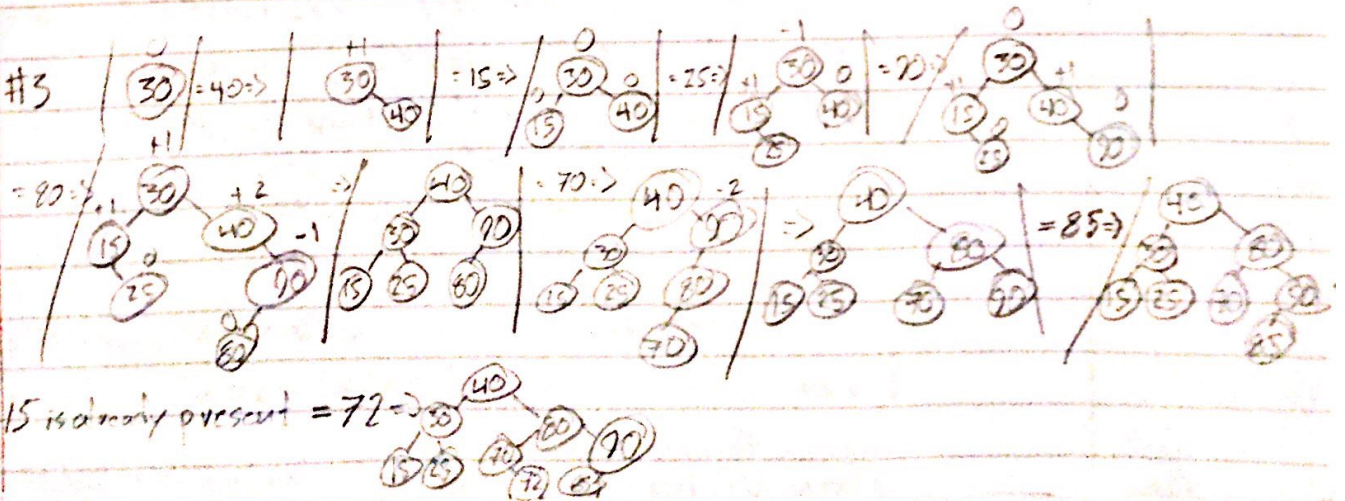 #3 0 30 =40=> +1 30 40 =15=> 0 30 0 15 0 40 =25=> -1 30 +1 15 0 40 25 =90=> 0 30 +1 15 +1 40 0 25 0 90
=80=> +1 30 +1 15 +2 40 0 25 -1 90 0 80 => 40 30 90 15 25 80 =70=> 40 -2 90 30 80 15 25 70 => 40 30 80 15 25 70 90 =85=> 40 30 80 15 25 70 90 85
15 is already present =72=> 40 30 80 15 25 70 90 72